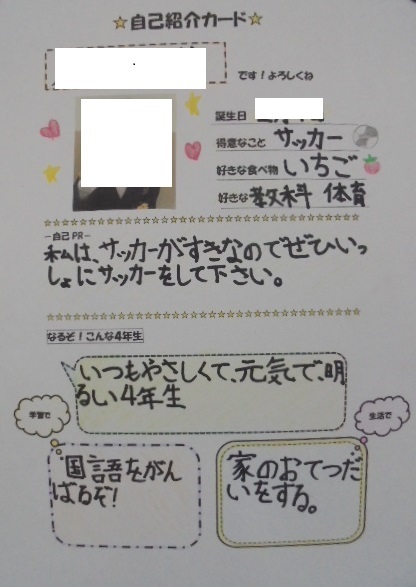 ☆自己紹介カード☆
です！よろしくね
誕生日
得意なこと サッカー
好きな食べ物 いちご
好きな教科 体育
－自己PR－
私は、サッカーがすきなのでぜひいっ
しょにサッカーをして下さい。
なるぞ！こんな4年生
いつもやさしくて、元気で、明
るい4年生
学習で
国語をがん
ばるぞ！
生活で
家のおてつだ
いをする。